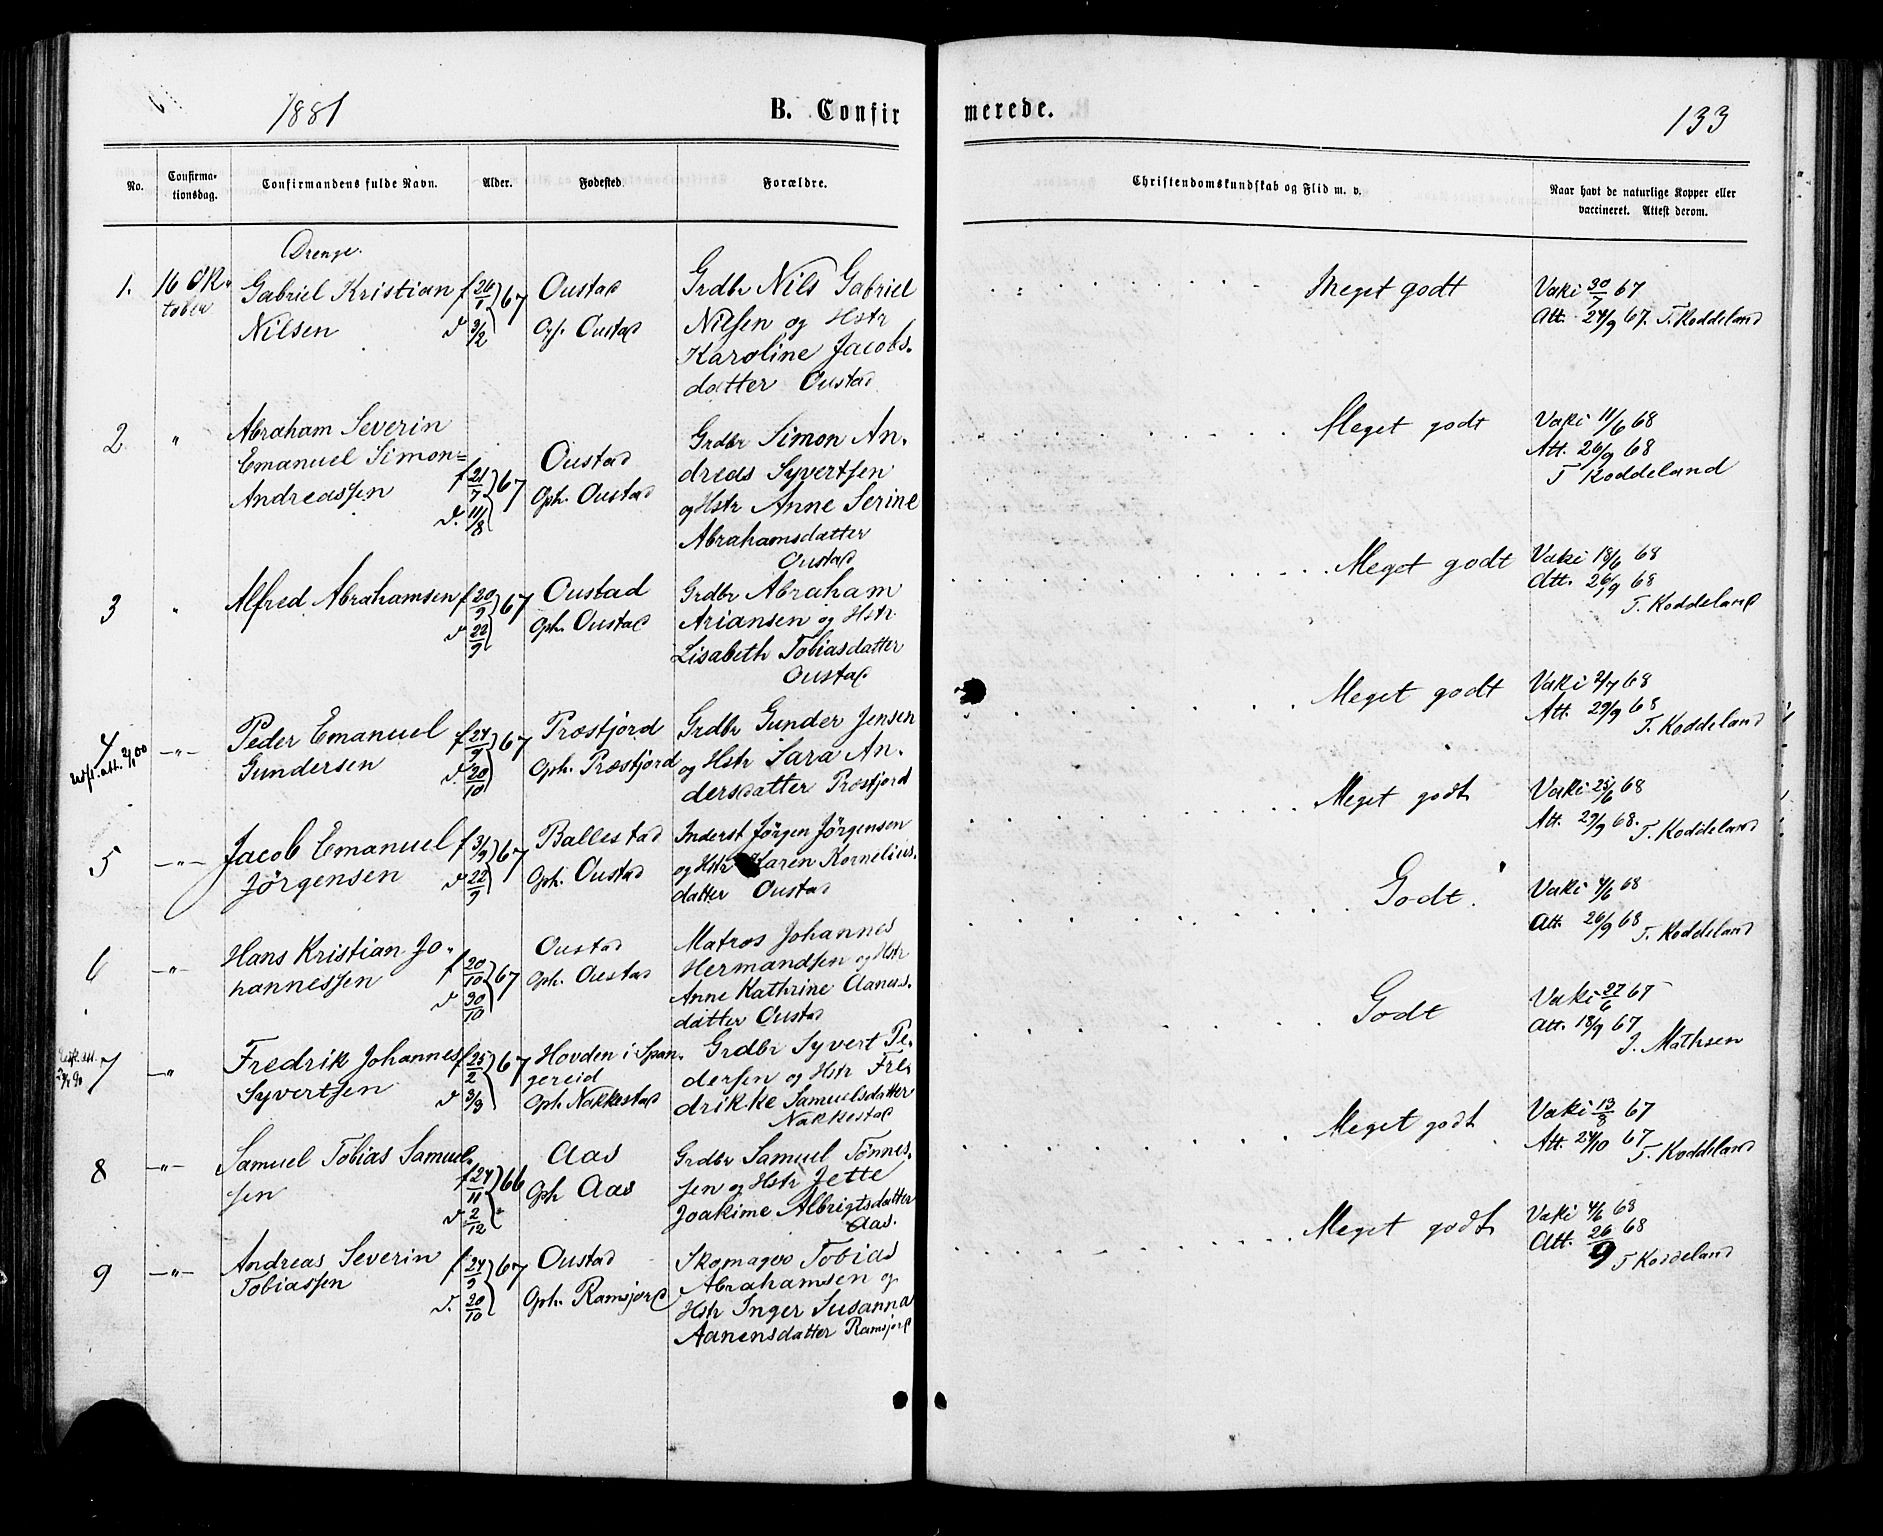 1881
B. Confir
merede.
133
No.
Confirma-
tionsdag.
Confirmandens fulde Navn.
Alder.
Fødested.
Forældre.
Christendomskundskab og Flid m. v.
Naar havt de naturlige Kopper eller
vaccineret. Attest derom.
Drenge.
1. 16 Ok-
tober
Gabriel Kristian
Nilsen
f 26/1 67
d. 3/2
Oustad
Oph. Oustad
Grdbr Nils Gabriel
Nilsen og Hstr
Karoline Jacobs-
datter Oustad
Meget godt
Vaki 30/7 67
Att. 24/9 67. T. Koddeland
2 "
Abraham Severin
Emanuel Simon=
Andreassen
f 21/7 67
d. 11/8
Oustad
Oph. Oustad
Grdbr Simon An-
dreas Syvertsen
og Hstr Anne Serine
Abrahamsdatter
Oustad
Meget godt
Vaki 11/6 68
Att. 26/9 68
T Koddeland
3 "
Alfred Abrahamsen
f 20/9 67
d. 22/9
Oustad
Oph. Oustad
Grdbr Abraham
Ariansen og Hstr
Lisabeth Tobiasdatter
Oustad
Meget godt
Vaki 18/6 68
Att. 26/9 68
T. Koddeland
4 -"-
Peder Emanuel
Gundersen
f 24/9 67
d. 20/10
Præstfjord
Oph. Præstfjord
Grdbr Gunder Jensen
og Hstr Sara An-
dersdatter Præstfjord
Meget godt
Vaki 2/7 68
Att. 29/9 68
T. Koddeland
5 -"-
Jacob Emanuel
Jörgensen
f 3/9 67
d 22/9
Ballestad
Oph. Oustad
Inderst Jörgen Jörgensen
og Hstr Karen Kornelius-
datter Oustad
Meget godt
Vaki 25/6 68
Att. 29/9 68. T. Koddeland
6 -"-
Hans Kristian Jo-
hannessen
f 20/10 67
d 30/10
Oustad
Oph. Oustad
Matros Johannes
Hermandsen og Hstr
Anne Kathrine Aanens-
datter Oustad
Godt
Vaki 4/6 68
Att. 26/9 68 T. Koddeland
7 -"-
Fredrik Johannes
Syvertsen
f 25/2 67
d 3/3
Hovden i Span-
gereid
Oph. Nakkestad
Grdbr Syvert Pe-
dersen og Hstr Fre-
drikke Samuelsdatter
Nakkestad
Godt
Vaki 27/6 67
Att. 18/9 67
J. Mathsen
8 -"-
Samuel Tobias Samuel-
sen
f 24/11 66
d 2/12
Aas
Oph Aas
Grdbr Samuel Tönnes-
sen og Hstr Jette
Joakime Albrigtsdatter
Aas.
Meget godt
Vaki 13/8 67
Att. 24/10 67
T. Koddeland
9 -"-
Andreas Severin
Tobiassen
f 24/9 67
d. 20/10
Oustad
Oph. Ramsjord
Skomager Tobias
Abrahamsen og
Hstr Inger Susanna
Aanensdatter Ramsjord
Meget godt
Vaki 4/6 68
Att. 26/9 68
T Koddeland